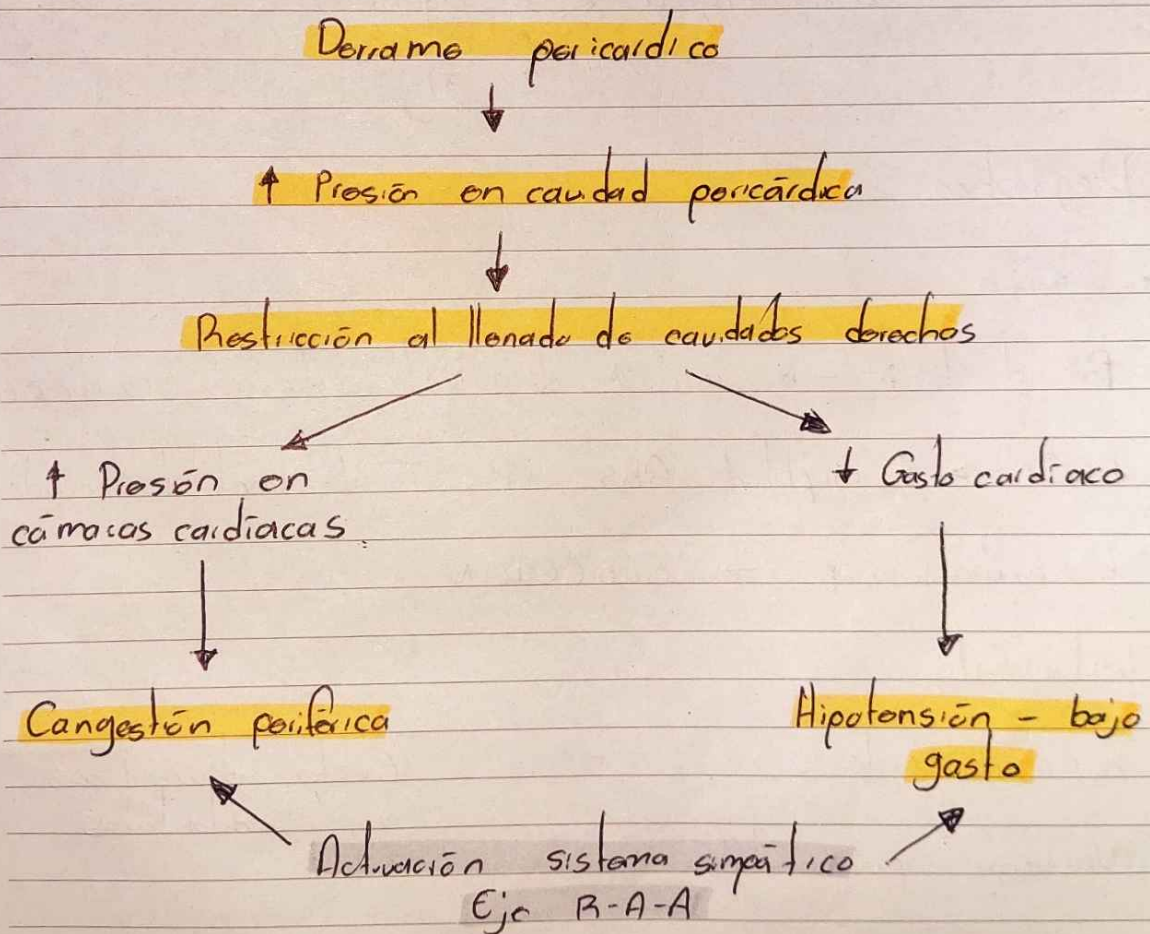 Derrame pericardico
↓
↑ Presión en cavidad pericárdica
↓
Restricción al llenado de cavidades derechas
↑ Presión en
cámaras cardíacas.
↓ Gasto cardíaco
Congestión periférica
Hipotensión - bajo
gasto
Activación sistema simpático
Eje R-A-A